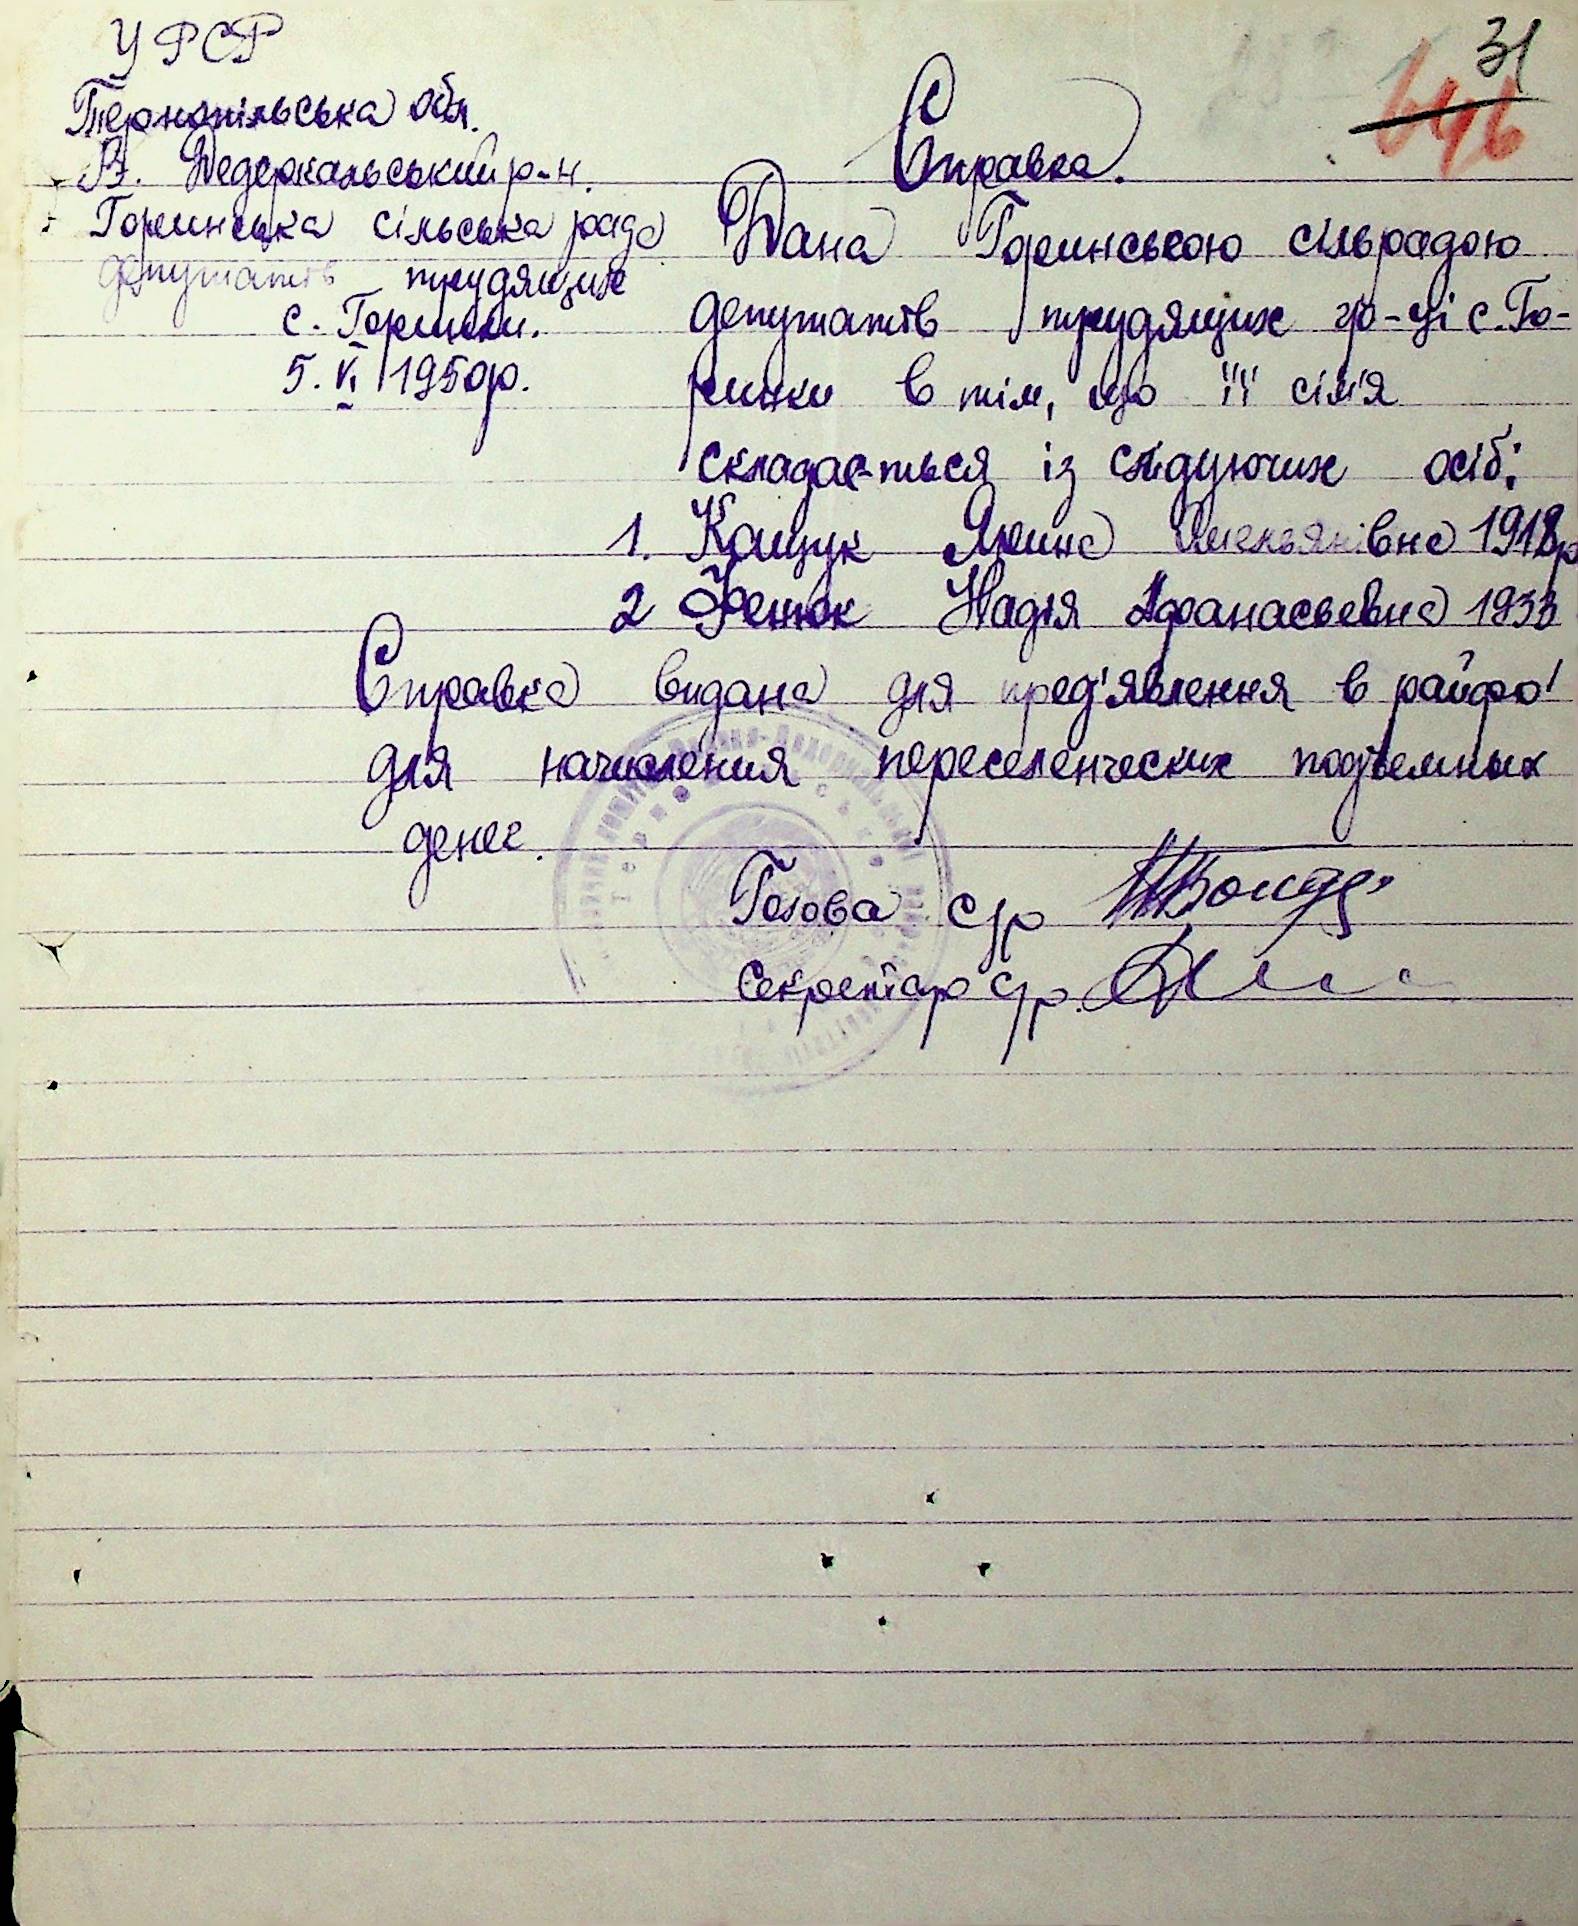 31
646
УРСР
Тернопільська обл.
В. Дедеркальський р-н.
Горинська сільська рада
депутатів трудящих
с. Горинки.
5. VI 1950р.
Справка.
Дана Горинською сільрадою
депутатів трудящих гр-ці с. Го-
ринки в тім, що її сім'я
складається із слідуючих осіб:
1. Кащук Ярина Омельянівна 1918р
2 Фенюк Надія Афанасьевна 1933
Справка видана для пред'явлення в райфо
для начисления переселенческих подъемных
денег.
Голова с/р
Секретар с/р.